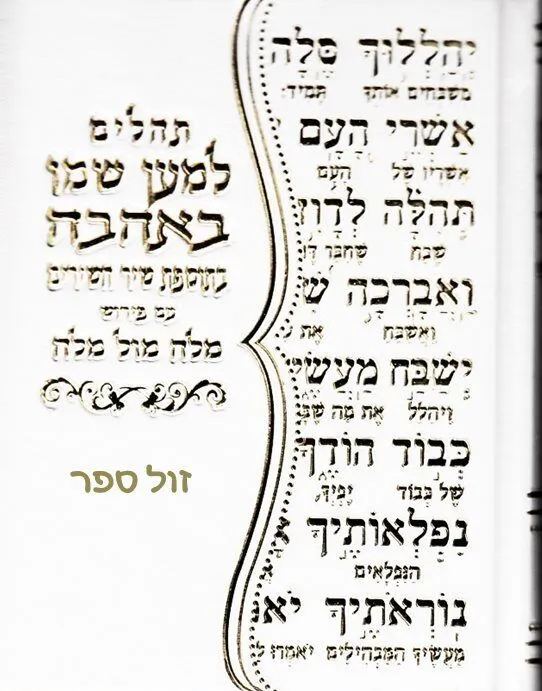 תהלים
למען שמו
באהבה
בתוספת שיר השירים
עם פירוש
מלה מול מלה
זול ספר
יְהַלְלוּךָ סֶּלָה
משבחים אותך תמיד:
אַשְׁרֵי הָעָם
אשריו של העם
תְּהִלָּה לְדָוִד
שבח שחבר
וַאֲבָרְכָה
ואשבח את
יְשַׁבַּח מַעֲשֶׂי
ויהלל את מה
כְּבוֹד הוֹדֶךָ
של כבוד יפיך
נִפְלְאוֹתֶיךָ
הנפלאים
נוֹרְאֹתֶיךָ
מעשיך המבהילים יאמרו